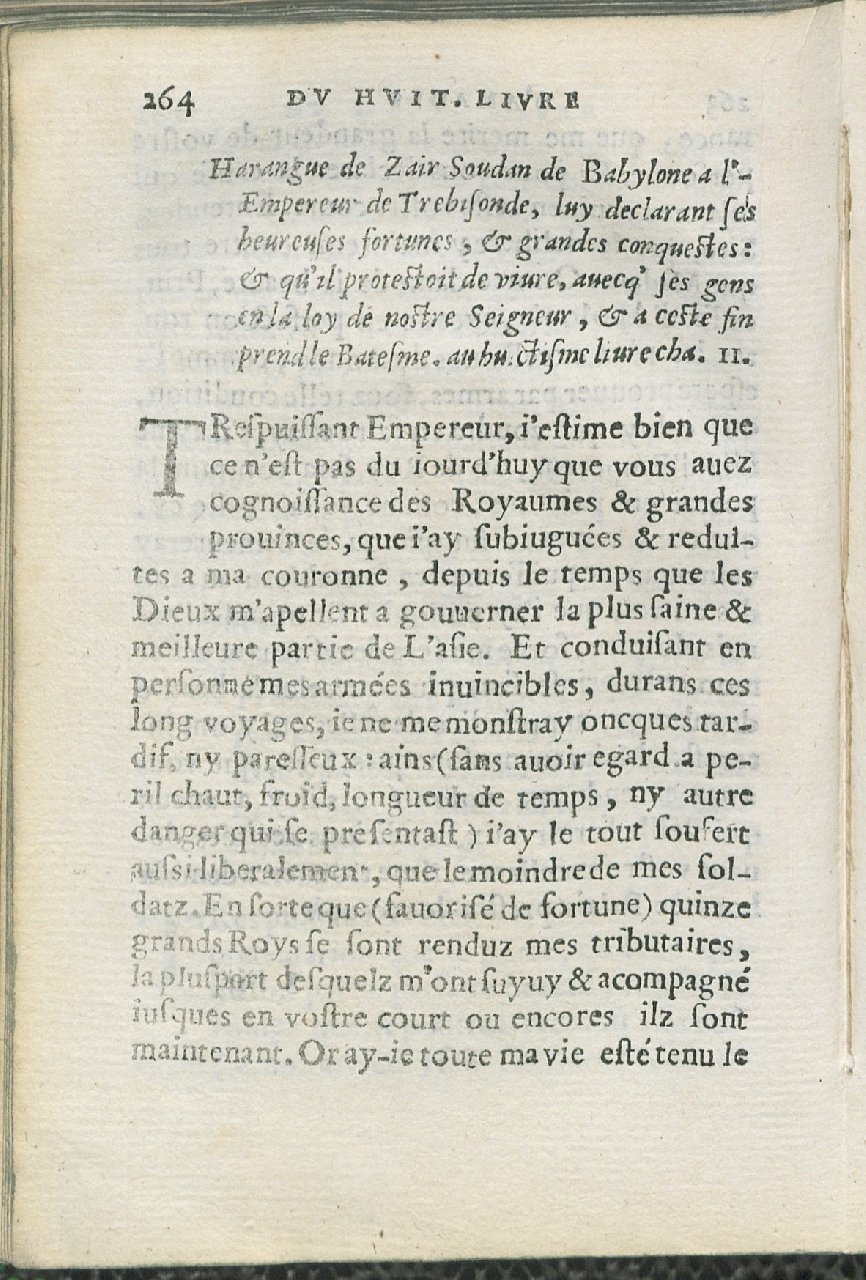 264 DV HVIT. LIVRE
Harangue de Zair Soudan de Babylone a l'-
Empereur de Trebisonde, luy declarant ses
heureuſes fortunes, & grandes conqueſtes:
& qu'il proteſtoit de viure, auecq' ſes gens
en la loy de noſtre Seigneur, & a ceſte fin
prend le Bateſme. au hu.ctiſme liure cha. II.
TReſpuiſſant Empereur, i'eſtime bien que
ce n'eſt pas du iourd'huy que vous auez
cognoiſſance des Royaumes & grandes
prouinces, que i'ay ſubiuguées & redui-
tes a ma couronne, depuis le temps que les
Dieux m'apellent a gouuerner la plus ſaine &
meilleure partie de L'aſie. Et conduiſant en
perſonne mes armées inuincibles, durans ces
long voyages, ie ne me monſtray oncques tar-
dif, ny pareſſeux: ains (ſans auoir egard a pe-
ril chaut, froid, longueur de temps, ny autre
danger qui ſe preſentaſt) i'ay le tout ſoufert
auſsi liberalement, que le moindre de mes ſol-
datz. En ſorte que (fauoriſé de fortune) quinze
grands Roys ſe ſont renduz mes tributaires,
la pluſpart deſquelz m'ont ſuyuy & acompagné
iuſques en voſtre court ou encores ilz ſont
maintenant. Or ay-ie toute ma vie eſté tenu le